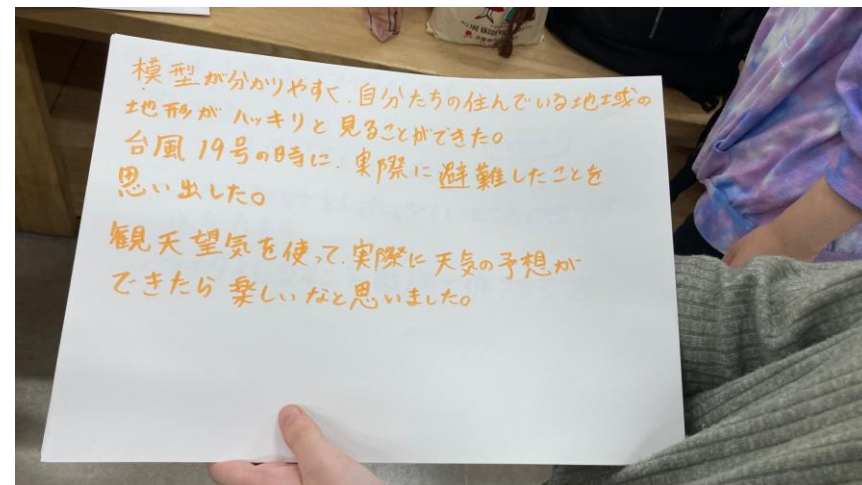 模型が分かりやすく、自分たちの住んでいる地域の
地形がハッキリと見ることができた。
台風19号の時に、実際に避難したことを
思い出した。
観天望気を使って、実際に天気の予想が
できたら楽しいなと思いました。